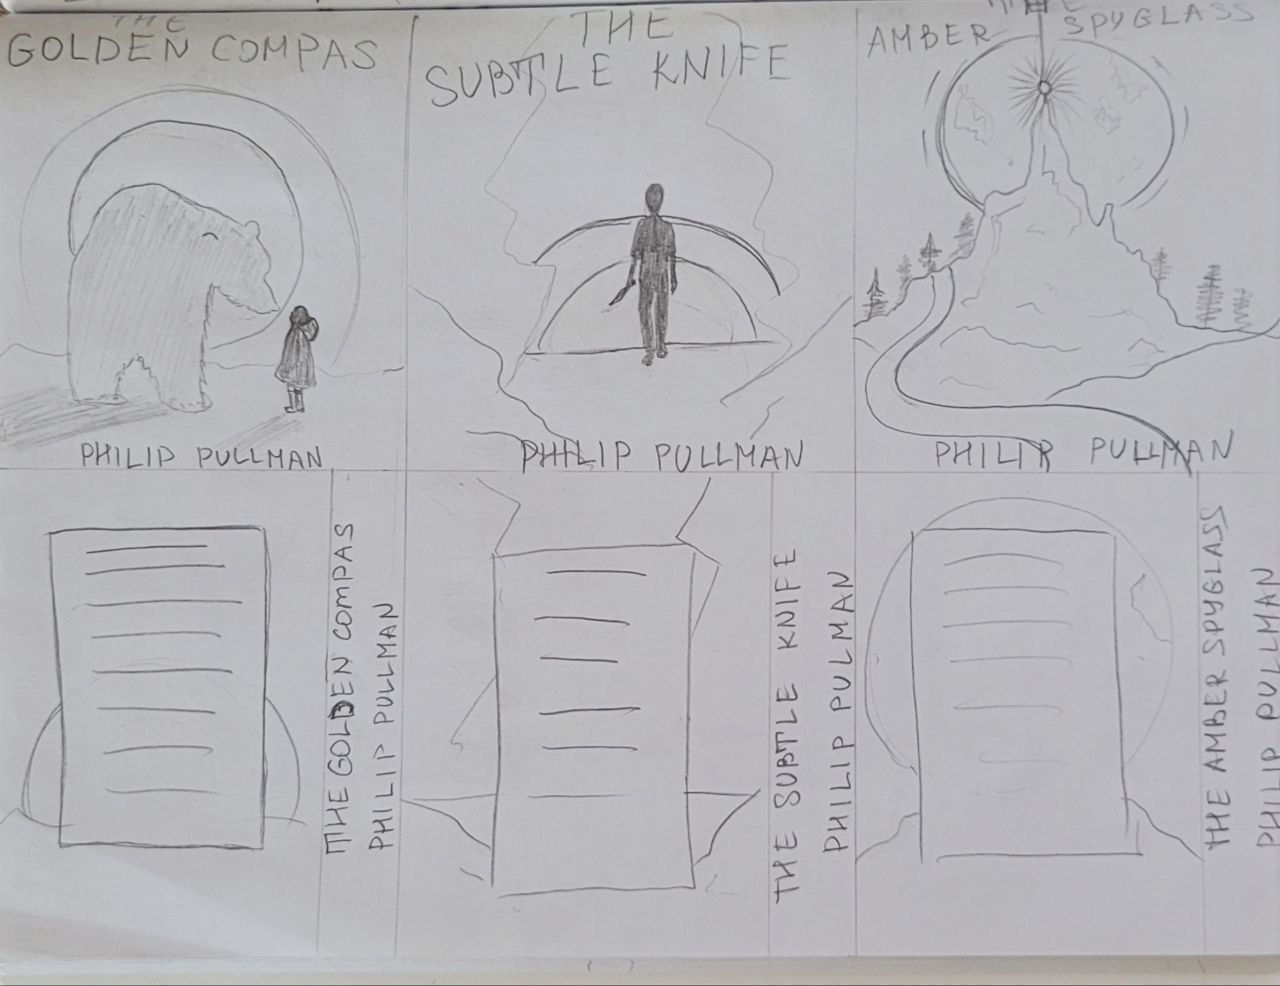 THE
GOLDEN COMPAS
PHILIP PULLMAN
THE
SUBTLE KNIFE
PHILIP PULLMAN
THE
AMBER SPYGLASS
PHILIP PULLMAN
THE GOLDEN COMPAS
PHILIP PULLMAN
THE SUBTLE KNIFE
PHILIP PULMAN
THE AMBER SPYGLASS
PHILIP PULLMAN